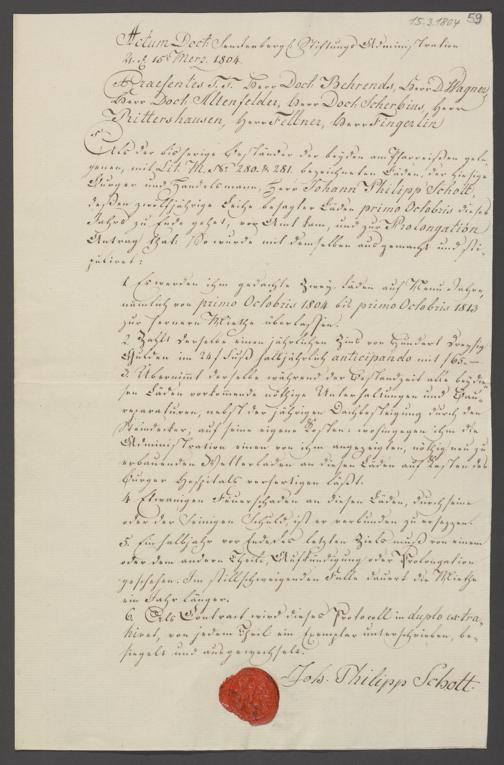 15.3.1804
59
Actum Doct. Senckenberg. Stiftungs Administration
d. 15t Merz. 1804.
Praesentes T. T. Herr Doct. Behrends, Herr D. Wagner,
Herr Doct. Altenfelder, Herr Doct. Scherbius, Herr
Rittershausen, Herr Fellner, Herr Fingerlin
Als der bisherige Beständer der beyden am Pfarreisen gele-
genen, mit Lit. M. No. 280. & 281. bezeichneten Läden, der hiesige
Burger und Handelsmann, Herr Johann Philipp Schott,
dessen zwölfjährige Leihe besagter Läden primo Octobris dieses
Jahrs zu Ende gehet, vor Amt kam, und zur Prolongation
Antrag that: So wurde mit demselben ausgemacht und sti-
puliret:
1. Es werden ihm gedachte Zwey Läden auf Neun Jahre,
nämlich von primo Octobris 1804 bis primo Octobris 1813
zur fernern Miethe überlassen.
2. Zahlt derselbe einen jährlichen Zins von Hundert Dreyssig
Gulden im 24 f Fuß halbjährlich anticipando mit f 65.—
3. Übernimmt derselbe während der Bestandzeit alle bey die-
sen Läden vorkommende nöthige Unterhaltungen und Bau-
reparaturen, nebst der jährigen Dachbesteigung durch den
Steindecker, auf seine eigene Kosten: wohingegen ihm die
Administration einen von ihm angezeigten, nöthig neu zu
erbauenden Wetterladen an diesen Läden auf Kosten des
Burger Hospitals verfertigen läßt.
4. Etwanigen Feuerschaden an diesen Läden, durch seine
oder der Seinigen Schuld, ist er verbunden zu ersezzen.
5. Ein halbjahr vor Ende des letzten Ziels muß von einem
oder dem andern Theile, Aufkündigung oder Prolongation
geschehen. Im stillschweigenden Falle dauert die Miethe
ein Jahr länger.
6. Als Contract wird dieses Protocoll in duplo extra-
hiret, von jedem Theil ein Exemplar unterschrieben, be-
siegelt und ausgewechselt.
Joh. Philipp Schott.